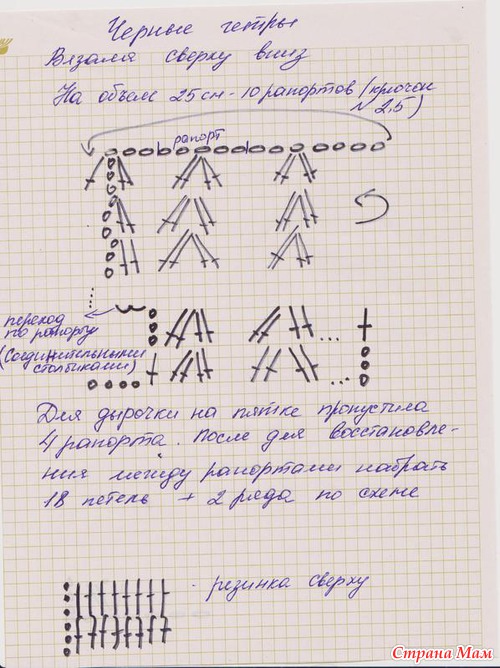 Черные гетры
Вязала сверху вниз
На объем 25 см - 10 рапортов (крючок
№ 2,5)
рапорт
переход
по рапорту
(Соединительными
столбиками)
Для дырочки на пятке пропустила
4 рапорта. После для восстановле-
ния между рапортами набрать
18 петель + 2 ряда по схеме
- резинка сверху
Страна Мам